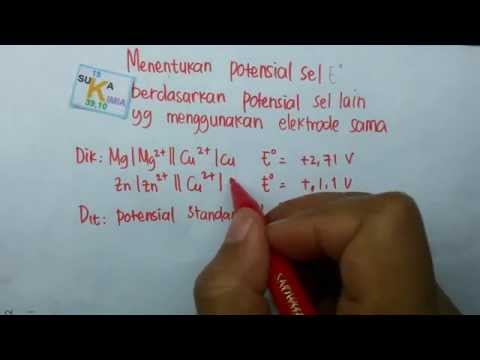 Menentukan potensial sel E°
berdasarkan potensial sel lain
yg menggunakan elektrode sama
19
SUKA
KIMIA
39,10
Dik: Mg | Mg²⁺ || Cu²⁺ | Cu E° = +2,71 V
Zn | Zn²⁺ || Cu²⁺ | E° = +1,1 V
Dit: potensial standar